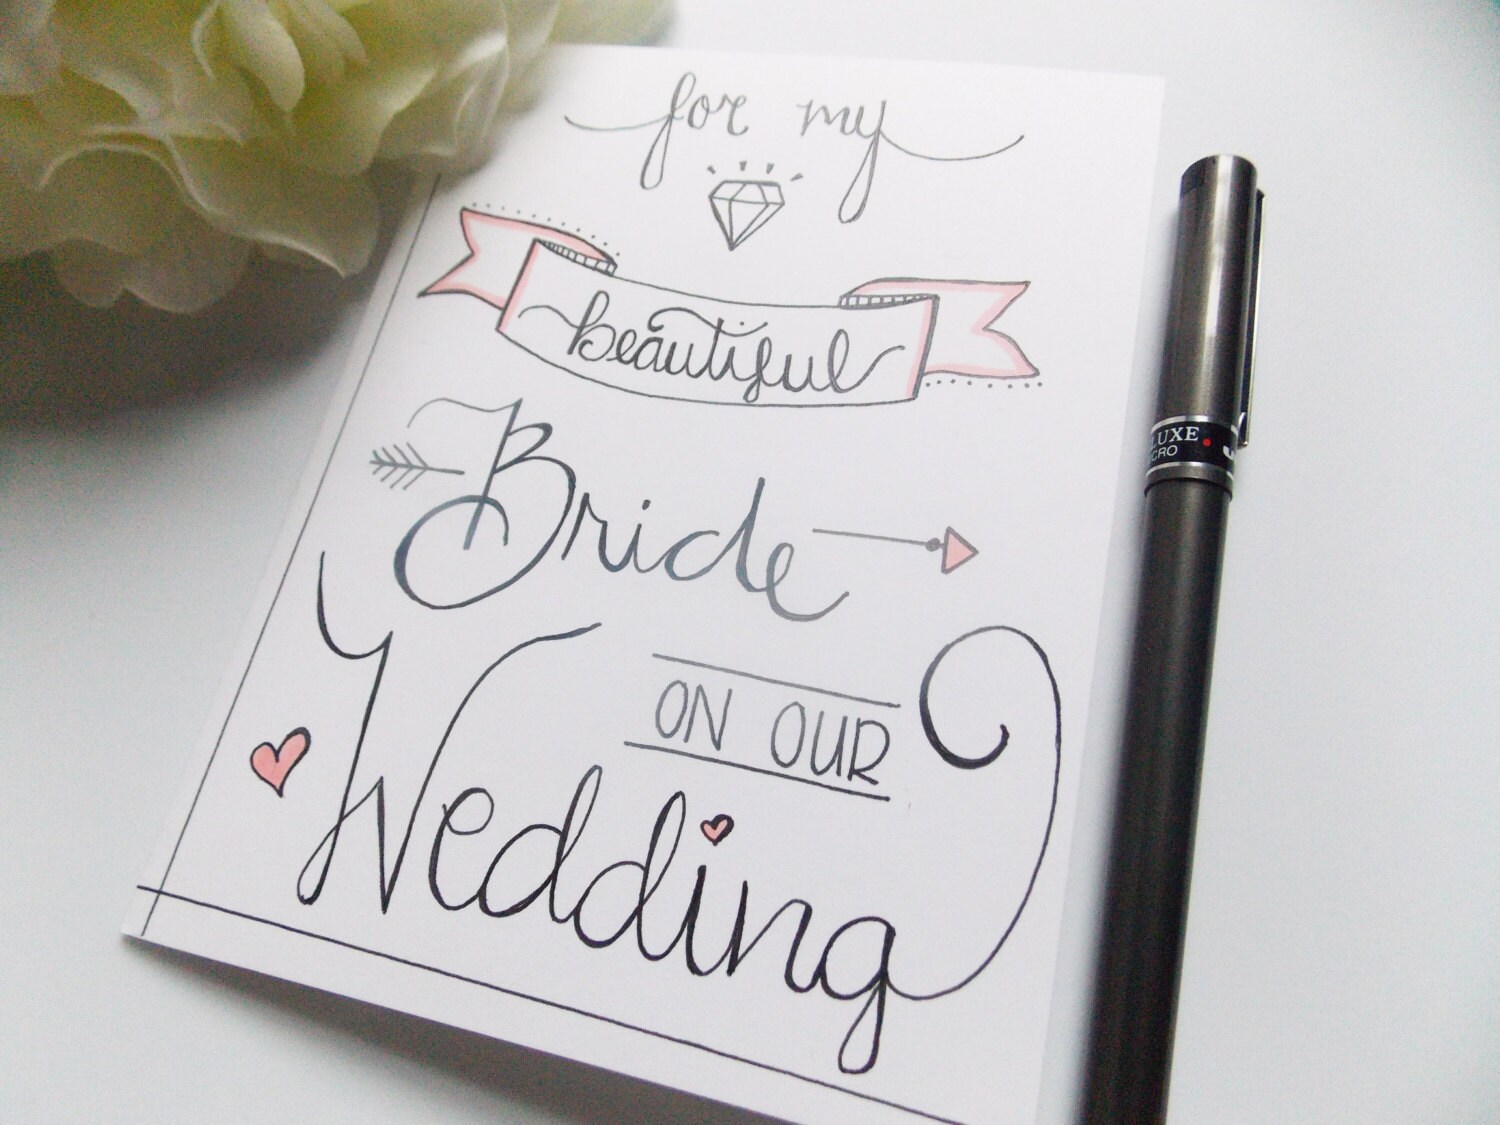 for my
beautiful
Bride
ON OUR
Wedding
LUXE
CRO